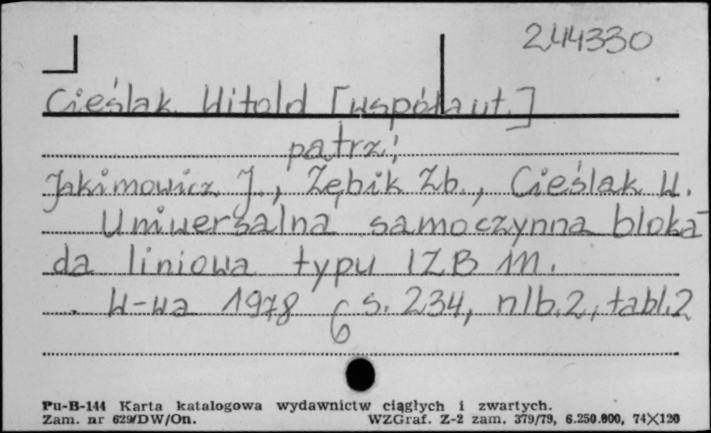 244330
Cieślak Witold [współaut.]
patrz:
Jakimowicz J., Zębik Zb., Cieślak W.
Uniwersalna samoczynna bloka-
da liniowa typu IZB m.
W-wa 1978 6 s. 234, nlb.2, tabl.2
Pu-B-144 Karta katalogowa wydawnictw ciągłych i zwartych.
Zam. nr 629/DW/On. WZGraf. Z-2 zam. 379/79, 6.250.000, 74×120